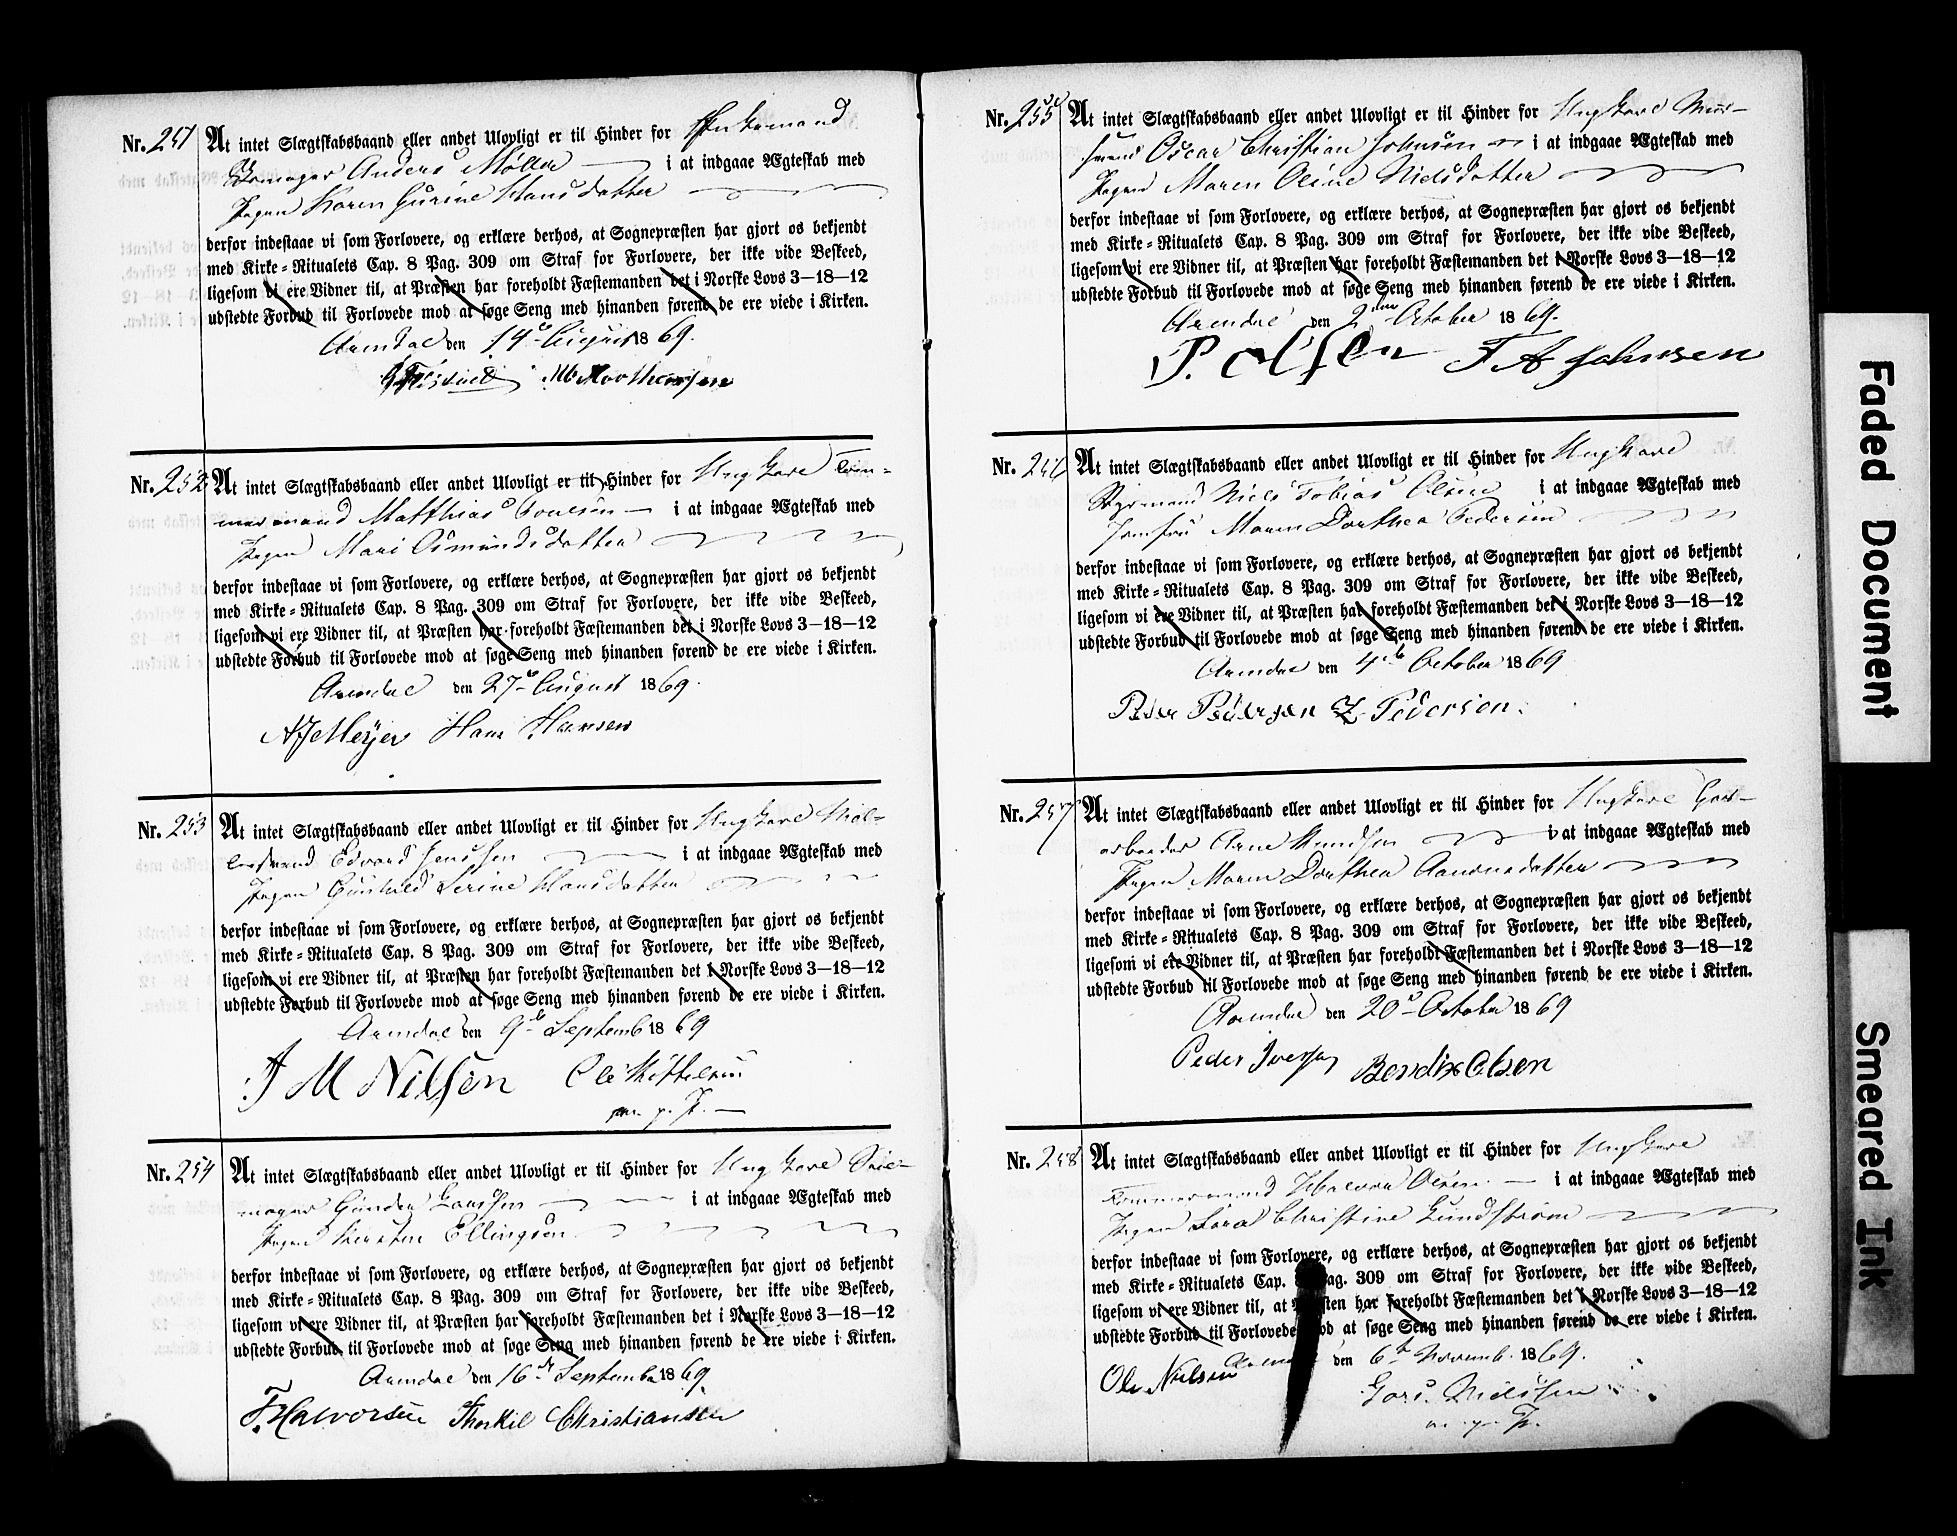 Nr. 251 At intet Slægtskabsbaand eller andet Ulovligt er til Hinder for Enkemand
Anders Møller i at indgaae Ægteskab med
Pigen Karen Gurine Hansdatter
derfor indestaae vi som Forlovere, og erklære derhos, at Sognepræsten har gjort os bekjendt
med Kirke-Ritualets Cap. 8 Pag. 309 om Straf for Forlovere, der ikke vide Beskeed,
ligesom vi ere Vidner til, at Præsten har foreholdt Fæstemanden det i Norske Lovs 3-18-12
udstedte Forbud til Forlovede mod at søge Seng med hinanden førend de ere viede i Kirken.
Arendal den 14de August 1869.
Nr. 252 At intet Slægtskabsbaand eller andet Ulovligt er til Hinder for Ungkarl Tøm-
mermand Matthias i at indgaae Ægteskab med
Pigen Mari Osmundsdatter
derfor indestaae vi som Forlovere, og erklære derhos, at Sognepræsten har gjort os bekjendt
med Kirke-Ritualets Cap. 8 Pag. 309 om Straf for Forlovere, der ikke vide Beskeed,
ligesom vi ere Vidner til, at Præsten har foreholdt Fæstemanden det i Norske Lovs 3-18-12
udstedte Forbud til Forlovede mod at søge Seng med hinanden førend de ere viede i Kirken.
Arendal den 27de August 1869.
Meyer Hans Hansen
Nr. 253 At intet Slægtskabsbaand eller andet Ulovligt er til Hinder for Ungkarl
Edvard Jenssen i at indgaae Ægteskab med
Pigen Gunhild Serine Hansdatter
derfor indestaae vi som Forlovere, og erklære derhos, at Sognepræsten har gjort os bekjendt
med Kirke-Ritualets Cap. 8 Pag. 309 om Straf for Forlovere, der ikke vide Beskeed,
ligesom vi ere Vidner til, at Præsten har foreholdt Fæstemanden det i Norske Lovs 3-18-12
udstedte Forbud til Forlovede mod at søge Seng med hinanden førend de ere viede i Kirken.
Arendal den 9de Septemb 1869
J M Nilsen Ole Kittelsen
m. p. P.
Nr. 254 At intet Slægtskabsbaand eller andet Ulovligt er til Hinder for Ungkarl
mager Gunder Larssen i at indgaae Ægteskab med
Pigen Kirstine Ellingsen
derfor indestaae vi som Forlovere, og erklære derhos, at Sognepræsten har gjort os bekjendt
med Kirke-Ritualets Cap. 8 Pag. 309 om Straf for Forlovere, der ikke vide Beskeed,
ligesom vi ere Vidner til, at Præsten har foreholdt Fæstemanden det i Norske Lovs 3-18-12
udstedte Forbud til Forlovede mod at søge Seng med hinanden førend de ere viede i Kirken.
Arendal den 16de September 1869
T. Halvorsen Thorkil Christiansen
Nr. 255 At intet Slægtskabsbaand eller andet Ulovligt er til Hinder for Ungkarl
Oscar Christian Johnsen i at indgaae Ægteskab med
Pigen Maren Oline Nielsdatter
derfor indestaae vi som Forlovere, og erklære derhos, at Sognepræsten har gjort os bekjendt
med Kirke-Ritualets Cap. 8 Pag. 309 om Straf for Forlovere, der ikke vide Beskeed,
ligesom vi ere Vidner til, at Præsten har foreholdt Fæstemanden det i Norske Lovs 3-18-12
udstedte Forbud til Forlovede mod at søge Seng med hinanden førend de ere viede i Kirken.
Arendal den 2den October 1869.
P. Olsen T A Johnsen
Nr. 256 At intet Slægtskabsbaand eller andet Ulovligt er til Hinder for Ungkarl
Styrmand Niels Tobias Olsen i at indgaae Ægteskab med
Jomfru Maren Dorthea Pedersen
derfor indestaae vi som Forlovere, og erklære derhos, at Sognepræsten har gjort os bekjendt
med Kirke-Ritualets Cap. 8 Pag. 309 om Straf for Forlovere, der ikke vide Beskeed,
ligesom vi ere Vidner til, at Præsten har foreholdt Fæstemanden det i Norske Lovs 3-18-12
udstedte Forbud til Forlovede mod at søge Seng med hinanden førend de ere viede i Kirken.
Arendal den 4de October 1869
Peder Pedersen Z. Pedersen.
Nr. 257 At intet Slægtskabsbaand eller andet Ulovligt er til Hinder for Ungkarl
arbeider Arne Knudsen i at indgaae Ægteskab med
Pigen Maren Dorthea Aanonsdatter
derfor indestaae vi som Forlovere, og erklære derhos, at Sognepræsten har gjort os bekjendt
med Kirke-Ritualets Cap. 8 Pag. 309 om Straf for Forlovere, der ikke vide Beskeed,
ligesom vi ere Vidner til, at Præsten har foreholdt Fæstemanden det i Norske Lovs 3-18-12
udstedte Forbud til Forlovede mod at søge Seng med hinanden førend de ere viede i Kirken.
Arendal den 20de October 1869
Peder Iversen Bendix Olsen
Nr. 258 At intet Slægtskabsbaand eller andet Ulovligt er til Hinder for Ungkarl
Tømmermand Halvor Olsen i at indgaae Ægteskab med
Pigen Lara Christine Lundstrøm
derfor indestaae vi som Forlovere, og erklære derhos, at Sognepræsten har gjort os bekjendt
med Kirke-Ritualets Cap. Pag. 309 om Straf for Forlovere, der ikke vide Beskeed,
ligesom vi ere Vidner til, at Præsten har foreholdt Fæstemanden det i Norske Lovs 3-18-12
udstedte Forbud til Forlovede mod at søge Seng med hinanden førend de ere viede i Kirken.
Arendal den 6te Novemb. 1869.
Ole Nielsen Lars Nielsen
m. p. P.
Faded Document
Smeared Ink